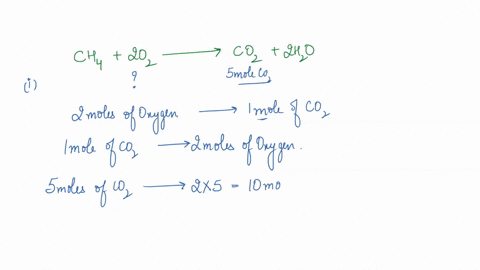 CH₄ + 2O₂ ⟶ CO₂ + 2H₂O
? 5mole CO₂
(i)
2 moles of Oxygen ⟶ 1 mole of CO₂
1 mole of CO₂ ⟶ 2 moles of Oxygen.
5 moles of CO₂ ⟶ 2 X 5 = 10 mo